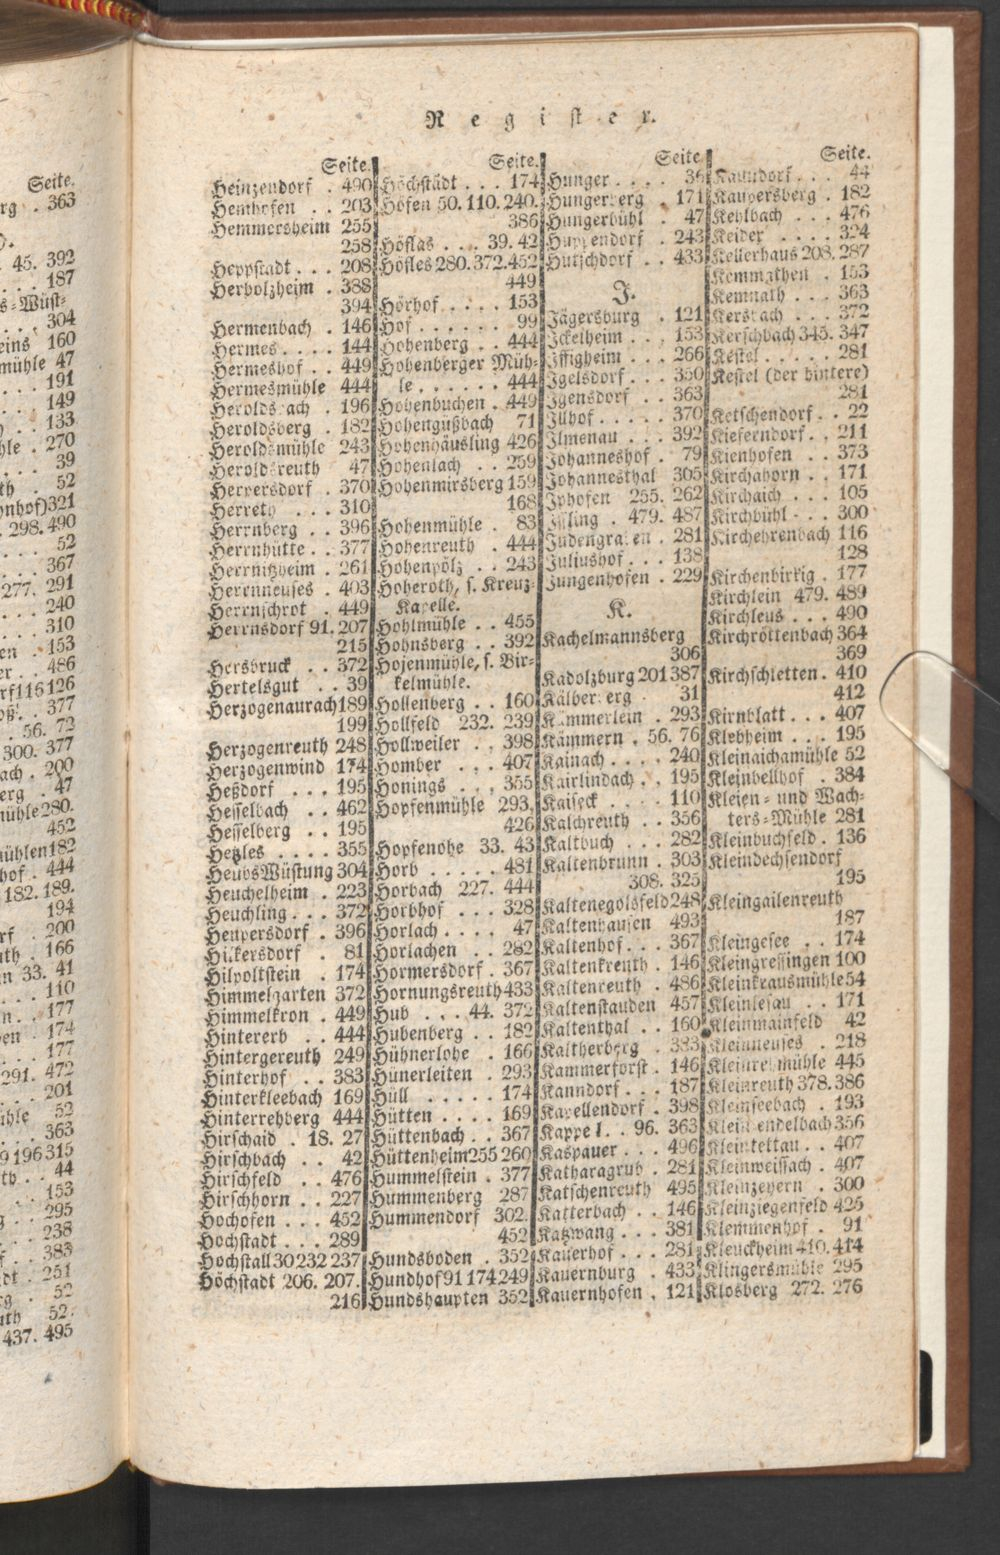 Seite.
rg . 363
45. 392
. . . 187
s=Wüst=
. . . 304
eins 160
mühle 47
. . 191
. . 149
. . 133
hle . 270
. . . 39
th . 52
nhof)321
. 298. 490
. . . 52
. . . 367
277. 291
. . . 240
. . . 310
en . 153
er . . 486
rf116126
oß. . 377
. 56. 73
300. 377
ach . 200
erg . 47
mühle280.
452
mühlen182
hof . 444
182. 189.
194
rf . 200
uth . 166
n 33. 41
. . . 110
n . . 177
en . 174
. . . 177
291. 472
. . . 201
ühle 52
. . . 363
9 196 315
th . . 44
. . . 153
g . . 295
. . . 238
f . . . 383
dt . 251
rg . 52
uth 52.
437. 495
Register.
Seite.
Heinzendorf . 490
Hemhofen . . 203
Hemmersheim 255
258
Heppstadt . . . 208
Herbolzheim . 388
394
Hermenbach . 146
Hermes . . . . 144
Hermeshof . . 449
Hermesmühle 444
Heroldsbach . 196
Heroldsberg . 182
Heroldsmühle 243
Heroldsreuth 47
Herpersdorf . 370
Herreth . . . 310
Herrnberg . . 396
Herrnhütte . . 377
Herrnitzheim . 261
Herrnneuses . 403
Herrnschrot . 449
Herrnsdorf 91. 207
215
Hersbruck . . 372
Hertelsgut . . 39
Herzogenaurach189
199
Herzogenreuth 248
Herzogenwind 174
Heßdorf . . . 195
Hesselbach . . 462
Hesselberg . . 195
Hetzles . . . . 355
HeubsWüstung 304
Heuchelheim . 223
Heuchling . . . 372
Heupersdorf . 396
Hilkersdorf . 81
Hilpoltstein . 174
Himmelgarten 372
Himmelkron . 449
Hintererb . . 444
Hintergereuth 249
Hinterhof . . 383
Hinterkleebach 169
Hinterrehberg 444
Hirschaid . 18. 27
Hirschbach . . 42
Hirschfeld . . 476
Hirschhorn . . 227
Hochofen . . . 452
Hochstadt . . . 289
Hochstall 30 232 237
Höchstadt 206. 207.
216
Seite.
Höchstädt . . . 174
Höfen 50. 110. 240.
386
Höflas . . . 39. 42
Höfles 280. 372. 452
449
Hörhof . . . . . 153
Hof . . . . . . 99
Hohenberg . . 444
Hohenberger Müh=
le . . . . . . 444
Hohenbuchen . 449
Hohengüßbach 71
Hohenhäusling 426
Hohenlach . . 259
Hohenmirsberg 159
168
Hohenmühle . 83
Hohenreuth . 444
Hohenpölz . . 243
Hoheroth, s. Kreuz=
Kapelle.
Hohlmühle . . 455
Hohnsberg . . 392
Hojenmühle, s. Bir=
kelmühle.
Hollenberg . . 160
Hollfeld 232. 239
Hollweiler . . 398
Homber . . . 407
Honings . . . 355
Hopfenmühle 293.
426
Hopfenohe 33. 43
Horb . . . . . 481
Horbach 227. 444
Horbhof . . . 328
Horlach . . . . 47
Horlachen . . 282
Hormersdorf . 367
Hornungsreuth433
Hub . . . 44. 372
Hubenberg . . 182
Hühnerlohe . 166
Hünerleiten . 293
Hüll . . . . . 174
Hütten . . . . 169
Hüttenbach . . 367
Hüttenheim255 260
Hummelstein . 377
Hummenberg 287
Hummendorf 302.
452
Hundsboden . 352
Hundhof91 174 249
Hundshaupten 352
Seite
Hunger . . . . 36
Hungerberg . 171
Hungerbühl . 47
Huppendorf . 243
Hutschdorf . . 433
J.
Jägersburg . 121
Ickelheim . . . 153
Iffigheim . . . 266
Igelsdorf . . . 350
Igensdorf . . 363
Illhof . . . . . 370
Ilmenau . . . 392
Johanneshof . 79
Johannesthal 305
Iphofen 255. 262
Issling . 479. 487
Judengraben . 281
Juliushof . . . 138
Jungenhofen . 229
K.
Kachelmannsberg
306
Kadolzburg 201 387
Kälberberg . 31
Kammerlein . 293
Kämmern . 56. 76
Kainach . . . . 240
Kairlindach . . 195
Kaiseck . . . . 110
Kalchreuth . . 356
Kaltbuch . . . 282
Kaltenbrunn . 303
308. 325
Kaltenegolsfeld248
Kaltenhausen 493
Kaltenhof . . . 367
Kaltenkreuth . 146
Kaltenreuth . 486
Kaltenstauden 457
Kaltenthal . . 160
Kaltherberg . 383
Kammerforst . 146
Kanndorf . . . 187
Kapellendorf . 398
Kappel . . 96. 363
Kaspauer . . . 496
Katharagrub . 281
Katschenreuth 495
Katterbach . . 146
Katzwang . . . 381
Kauerhof . . . 281
Kauernburg . 433
Kauernhofen . 121
Seite.
Kaundorf . . . 44
Kaupersberg . 182
Kehlbach . . . 476
Keider . . . . 324
Kellerhaus 208. 287
Kemmathen . 153
Kemnath . . . 363
Kersbach . . . 372
Kerschbach 345. 347
Kestel . . . . . 281
Kestel (der hintere)
281
Ketschendorf . . 22
Kieferndorf . . 211
Kienhofen . . 373
Kirchahorn . . 171
Kirchaich . . . 105
Kirchbühl . . . 300
Kirchehrenbach 116
128
Kirchenbirkig . 177
Kirchlein 479. 489
Kirchleus . . . 490
Kirchröttenbach 364
369
Kirchschletten . 410
412
Kirnblatt . . . 407
Klebheim . . . 195
Kleinaichamühle 52
Kleinbellhof . 384
Kleien= und Wach=
ters=Mühle 281
Kleinbuchfeld . 136
Kleindechsendorf
195
Kleingailenreuth
187
Kleingesee . . 174
Kleingressingen 100
Kleinkrausmühle54
Kleinlesau . . 171
Kleinmainfeld 42
Kleinneuses . 218
mühle 445
Kleinreuth 378. 386
Kleinseebach . 193
Kleinsendelbach 356
Kleintettau . . 407
Kleinweissach . 407
Kleinzeyern . 300
Kleinziegenfeld 425
Klemmenhof . 91
Kleuckheim 410. 414
Klingersmühle 295
Klosberg 272. 276